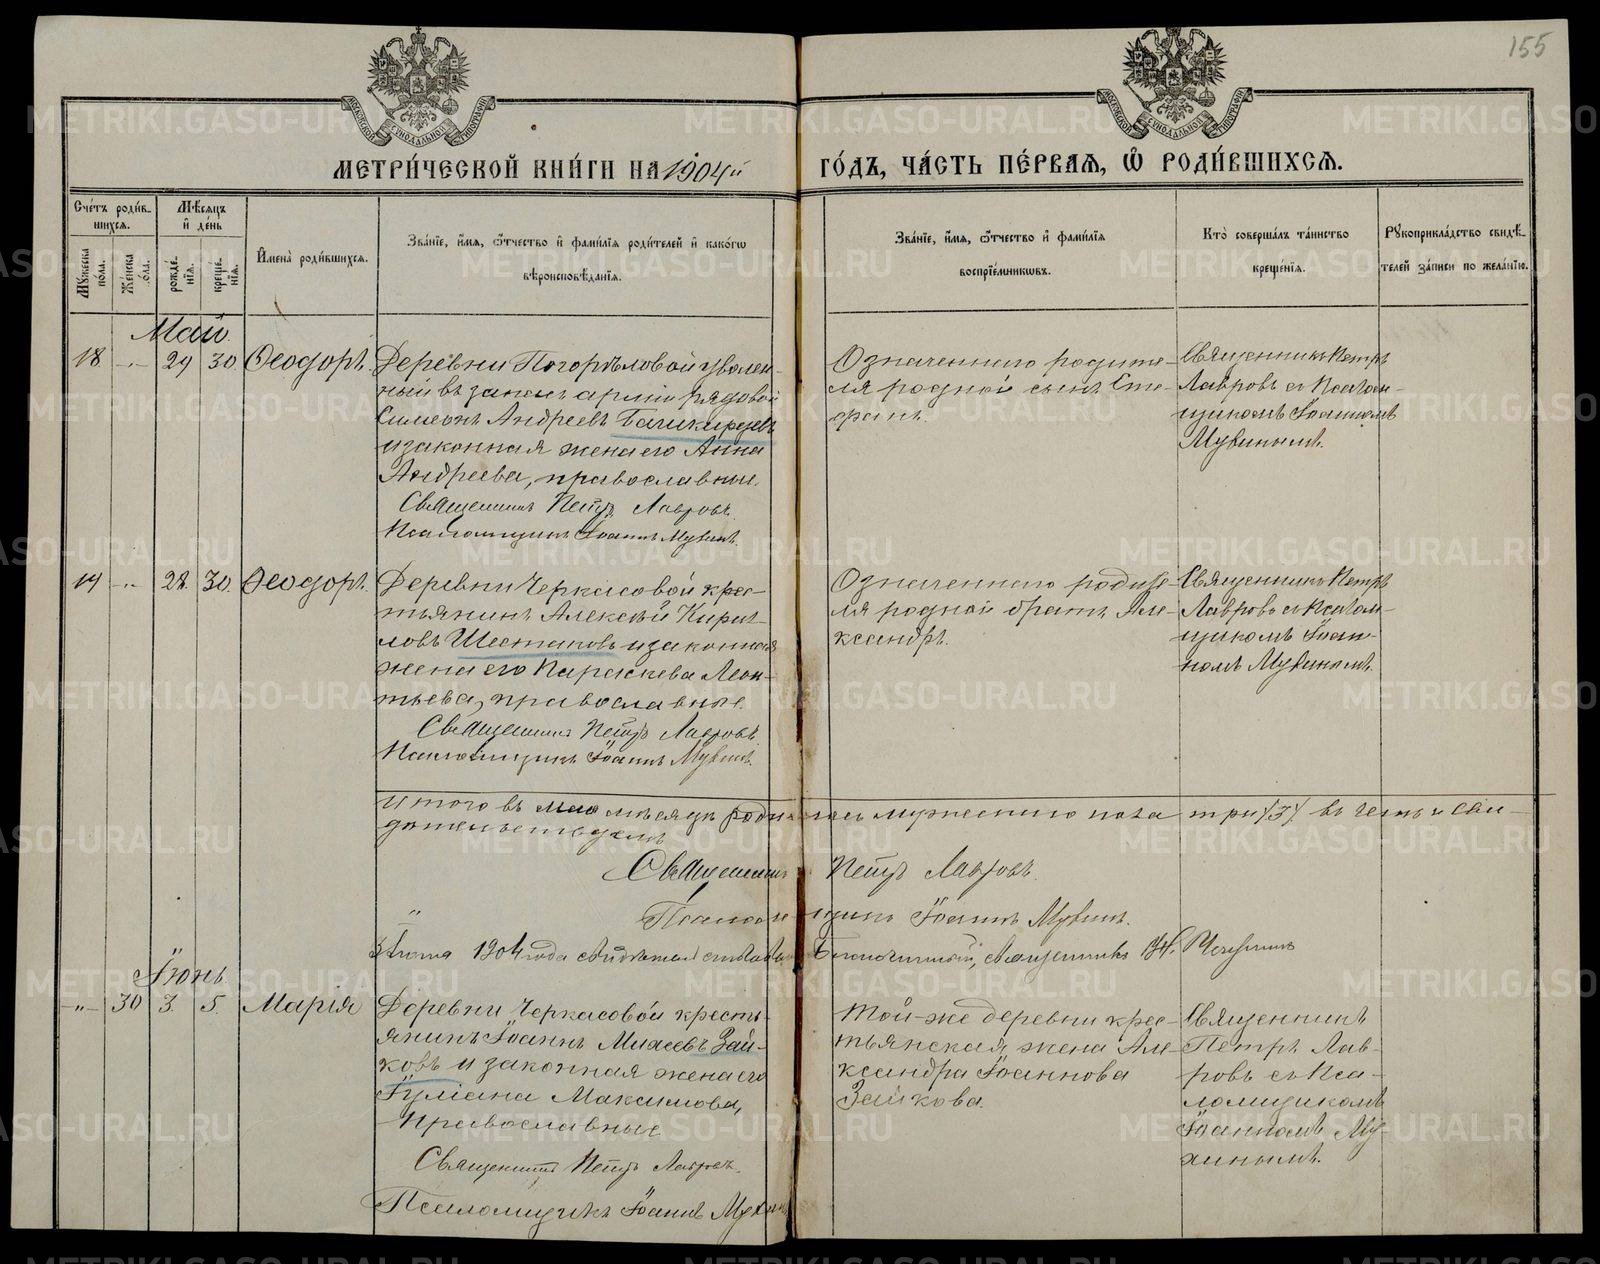 155
МЕТРИ́ЧЕСКОЙ КНИ́ГИ НА 1904й ГО́ДЪ, ЧА́СТЬ ПЕ́РВАЯ, Ѿ РОДИ́ВШИХСЯ.
Сче́тъ роди́в-
шихся.
Мꙋжеска пола.
Же́нска пола.
Мѣ́сяцъ
и де́нь
рожде́-
нїя.
креще́-
нїя.
Имена̀ роди́вшихся.
Зва́нїе, и́мя, ѻ҆́тчество и фами́лїя роди́телей и како́гѡ
вѣроисповѣ́данїя.
Зва́нїе, и́мя, ѻ҆́тчество и фами́лїя
воспрїе́мникѡвъ.
Кто̀ соверша́лъ та́инство
креще́нїя.
Рꙋкоприкла́дство свидѣ́-
телей за́писи по жела́нїю.
Май.
18 -„- 29 30 Ѳеодоръ.
Деревни Погорѣловой уволен-
ный въ запасъ армiи рядовой
Симеонъ Андреевъ Башкирцевъ
и законная жена его Анна
Андреева, православные.
Священникъ Петръ Лавровъ.
Псаломщикъ Іоаннъ Мухинъ.
Означеннаго родите-
ля родной сынъ Сте-
фанъ.
Священникъ Петръ
Лавровъ съ Псалом-
щикомъ Іоанномъ
Мухинымъ.
19 -„- 28. 30. Ѳеодоръ.
Деревни Черкасовой крес-
тьянинъ Алексѣй Кирил-
ловъ Шестаковъ и законная
жена его Параскева Леон-
тьева, православные.
Священникъ Петръ Лавровъ
Псаломщикъ Іоаннъ Мухинъ.
Означеннаго родите-
ля родной братъ Але-
ксандръ.
Священникъ Петръ
Лавровъ съ Псалом-
щикомъ Іоан-
номъ Мухинымъ.
Итого въ мае мѣсяцѣ родилось мужескаго пола три /3/ въ чемъ и сви-
дѣтельствуемъ
Священникъ Петръ Лавровъ.
„ Псаломщикъ Іоаннъ Мухинъ.
1904 года Благочинный, священникъ
Іюнь.
-„- 30 3. 5. Марія
Деревни Черкасовой кресть-
янинъ Іоаннъ Моисеевъ Зай-
ковъ и законная жена его
Іуліана Максимова,
православные
Священникъ Петръ Лавровъ.
Псаломщикъ Іоаннъ Мухинъ
Той-же деревни крес-
тьянская жена Але-
ксандра Іоаннова
Зайкова.
Священникъ
Петръ Лав-
ровъ съ Пса-
ломщикомъ
Іоанномъ Му-
хинымъ.
METRIKI.GASO-URAL.RU